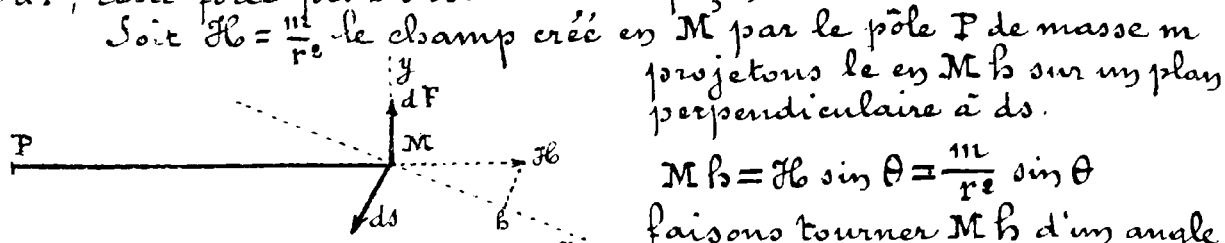 Soit H = m/r² le champ créé en M par le pôle P de masse m
projetons le en M h sur un plan
perpendiculaire à ds.
M h = H sin θ = m/r² sin θ
faisons tourner M h d'un angle
y
dF
P
M
H
ds
h